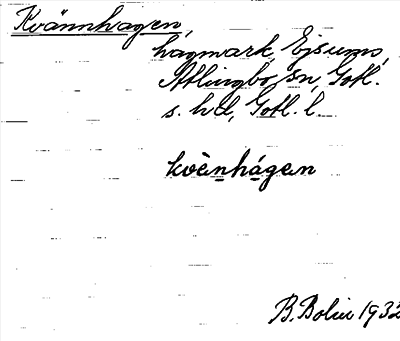 Kvännhagen,
hagmark, Ejsums,
Atlingbo sn, Gotl.
s. hd, Gotl. l.
kvènhágen
B. Bolin 1932